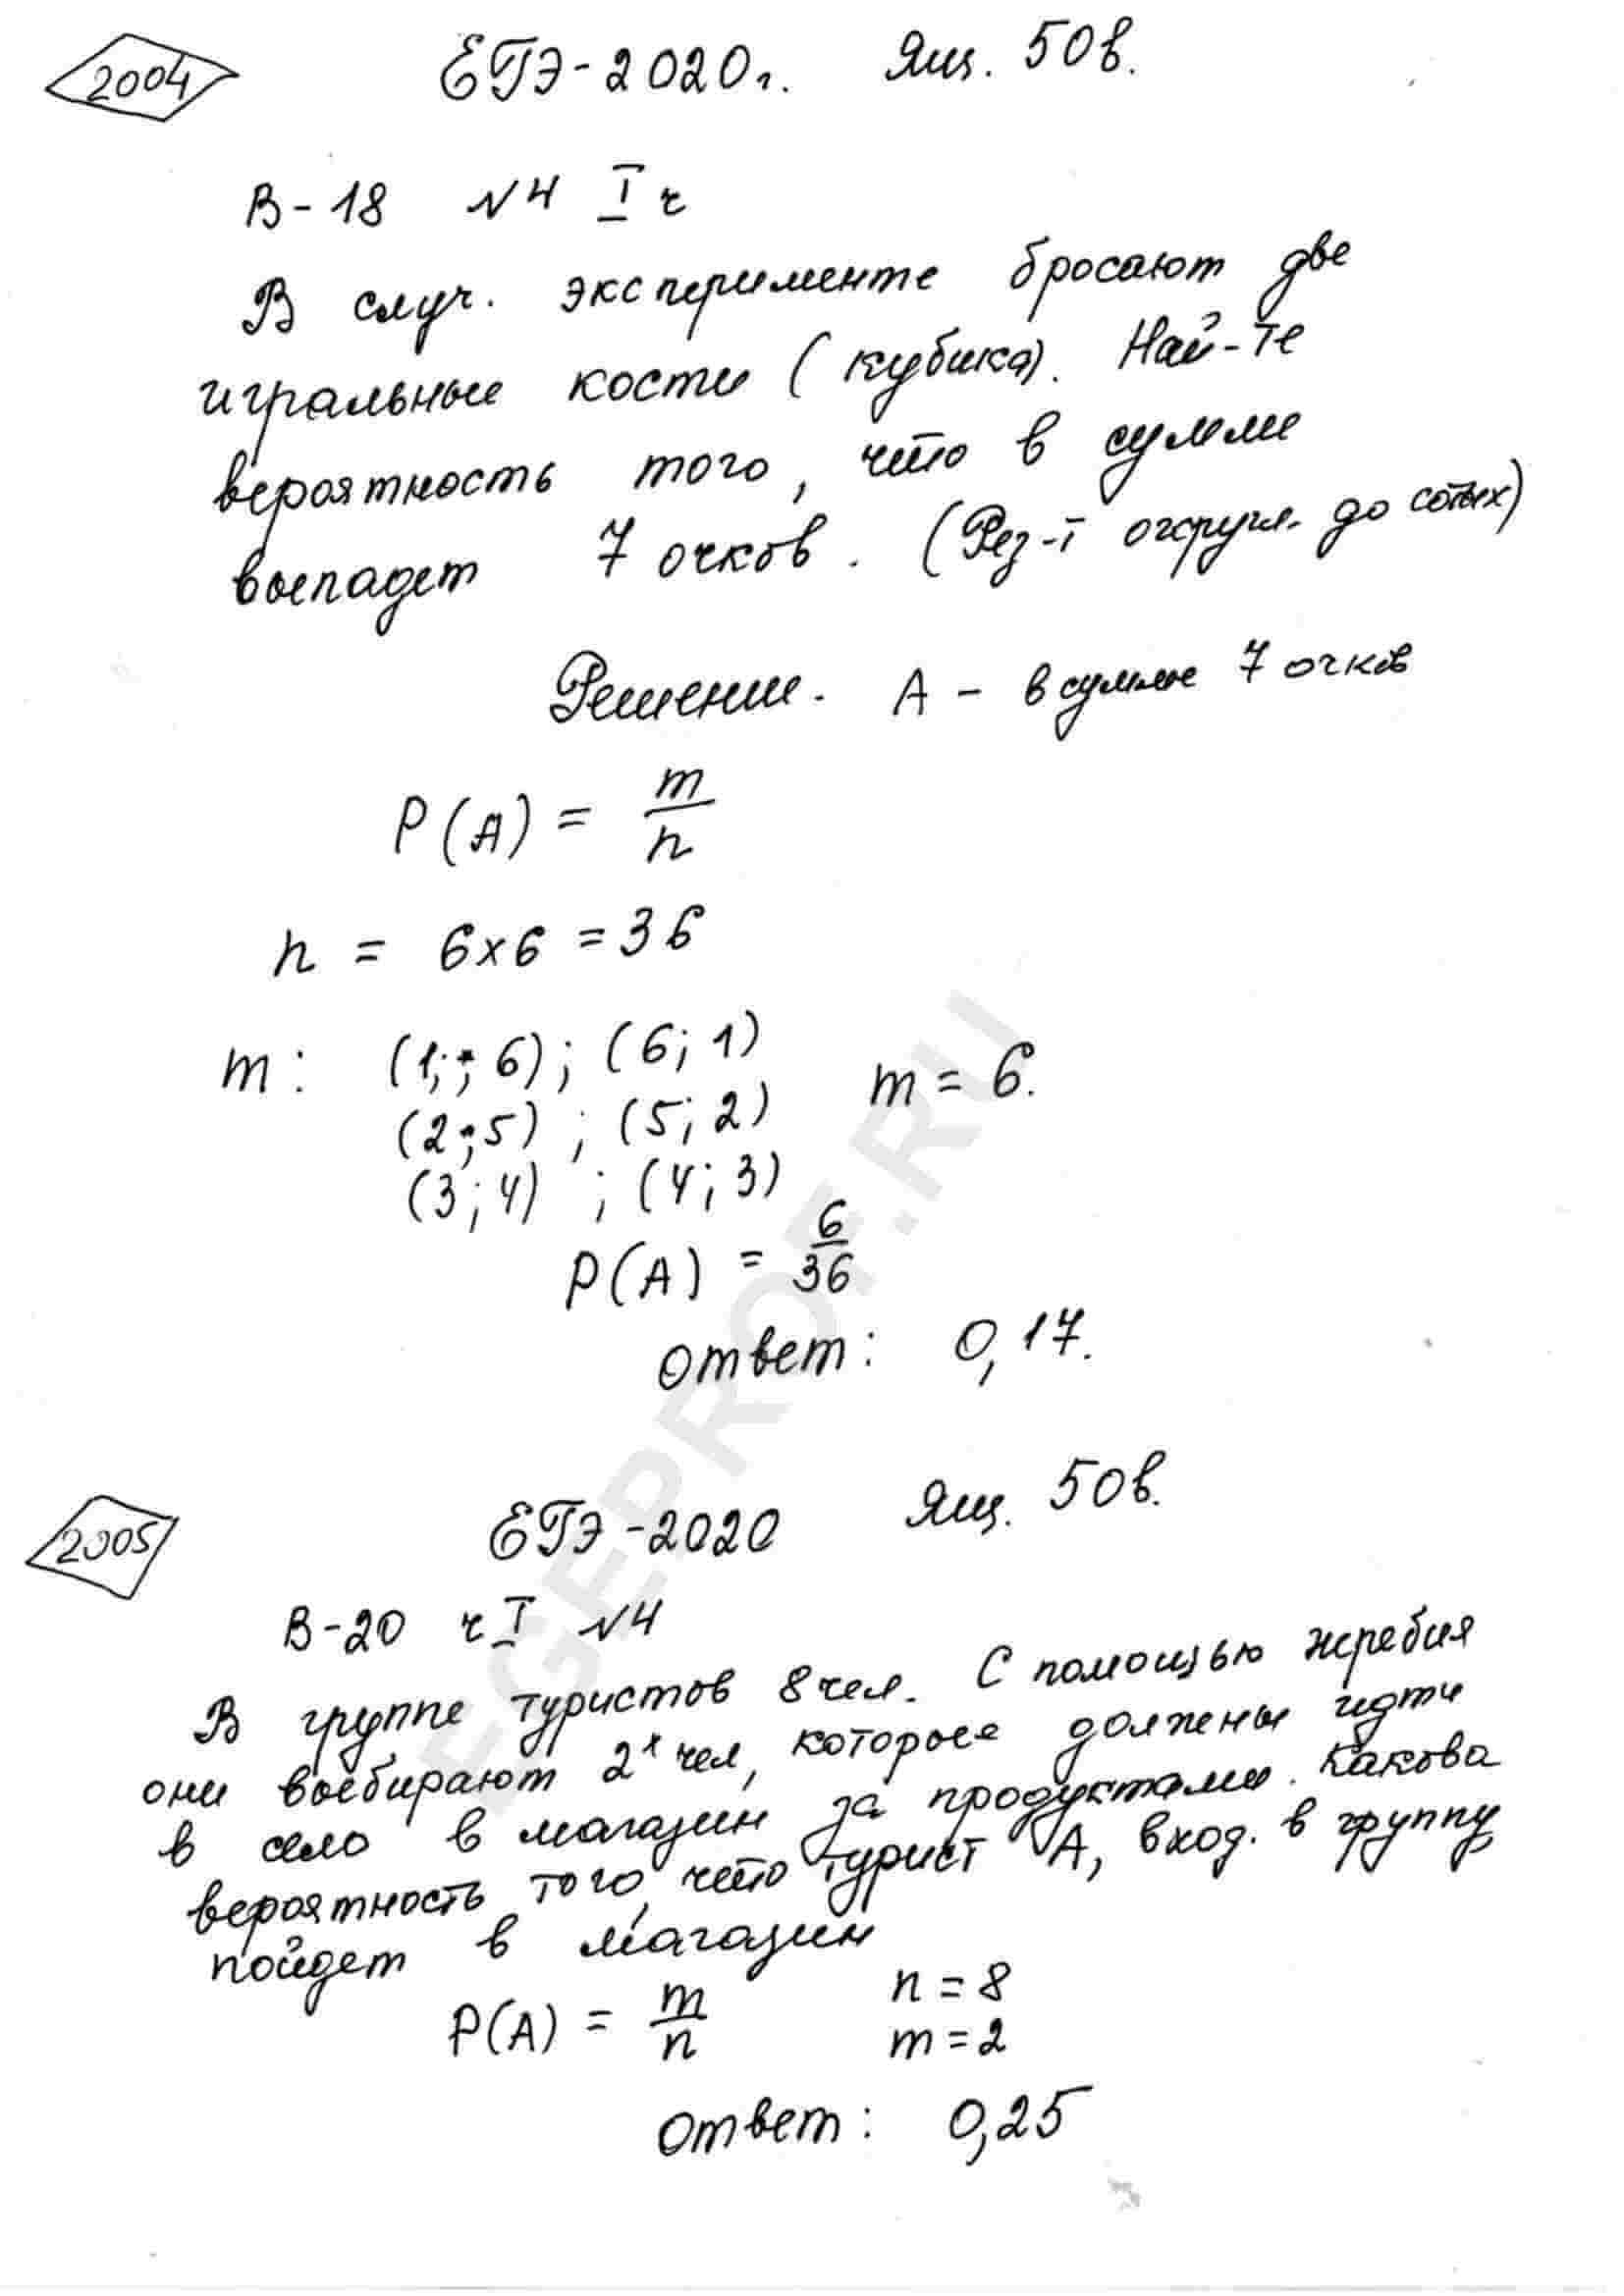 2004
ЕГЭ-2020г. Ящ. 50в.
В-18 №4 I ч
В случ. эксперименте бросают две
игральные кости (кубика). Най-те
вероятность того, что в сумме
выпадет 7 очков. (Рез-т округл. до сотых)
Решение. А - в сумме 7 очков
P(A) = m/n
n = 6x6 = 36
m: (1; ; 6); (6; 1)
(2;5) ; (5; 2) m = 6.
(3; 4) ; (4; 3)
P(A) = 6/36
Ответ: 0,17.
2005
ЕГЭ-2020 Ящ. 50в.
В-20 ч I №4
В группе туристов 8 чел. С помощью жребия
они выбирают 2х чел, которые должены идти
в село в магазин за продуктами. Какова
вероятность того, что турист А, вход. в группу
пойдет в магазин
P(A) = m/n n = 8
m = 2
Ответ: 0,25
EGEPROF.RU